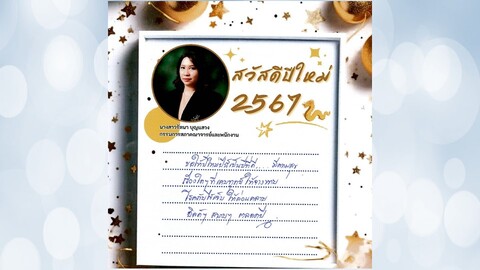 สวัสดีปีใหม่
2567
นางสาวรัสมา บุญแสวง
กรรมการสภาคณาจารย์และพนักงาน
ขอให้ปีใหม่ปีนี้เป็นปีที่ดี... มีความสุข
เรื่องใดๆที่เคยทุกข์ ให้จางหาย
โรคภัยไข้เจ็บ ให้ห่าง
ชีวิตดีๆ สงบๆ ตลอดปี